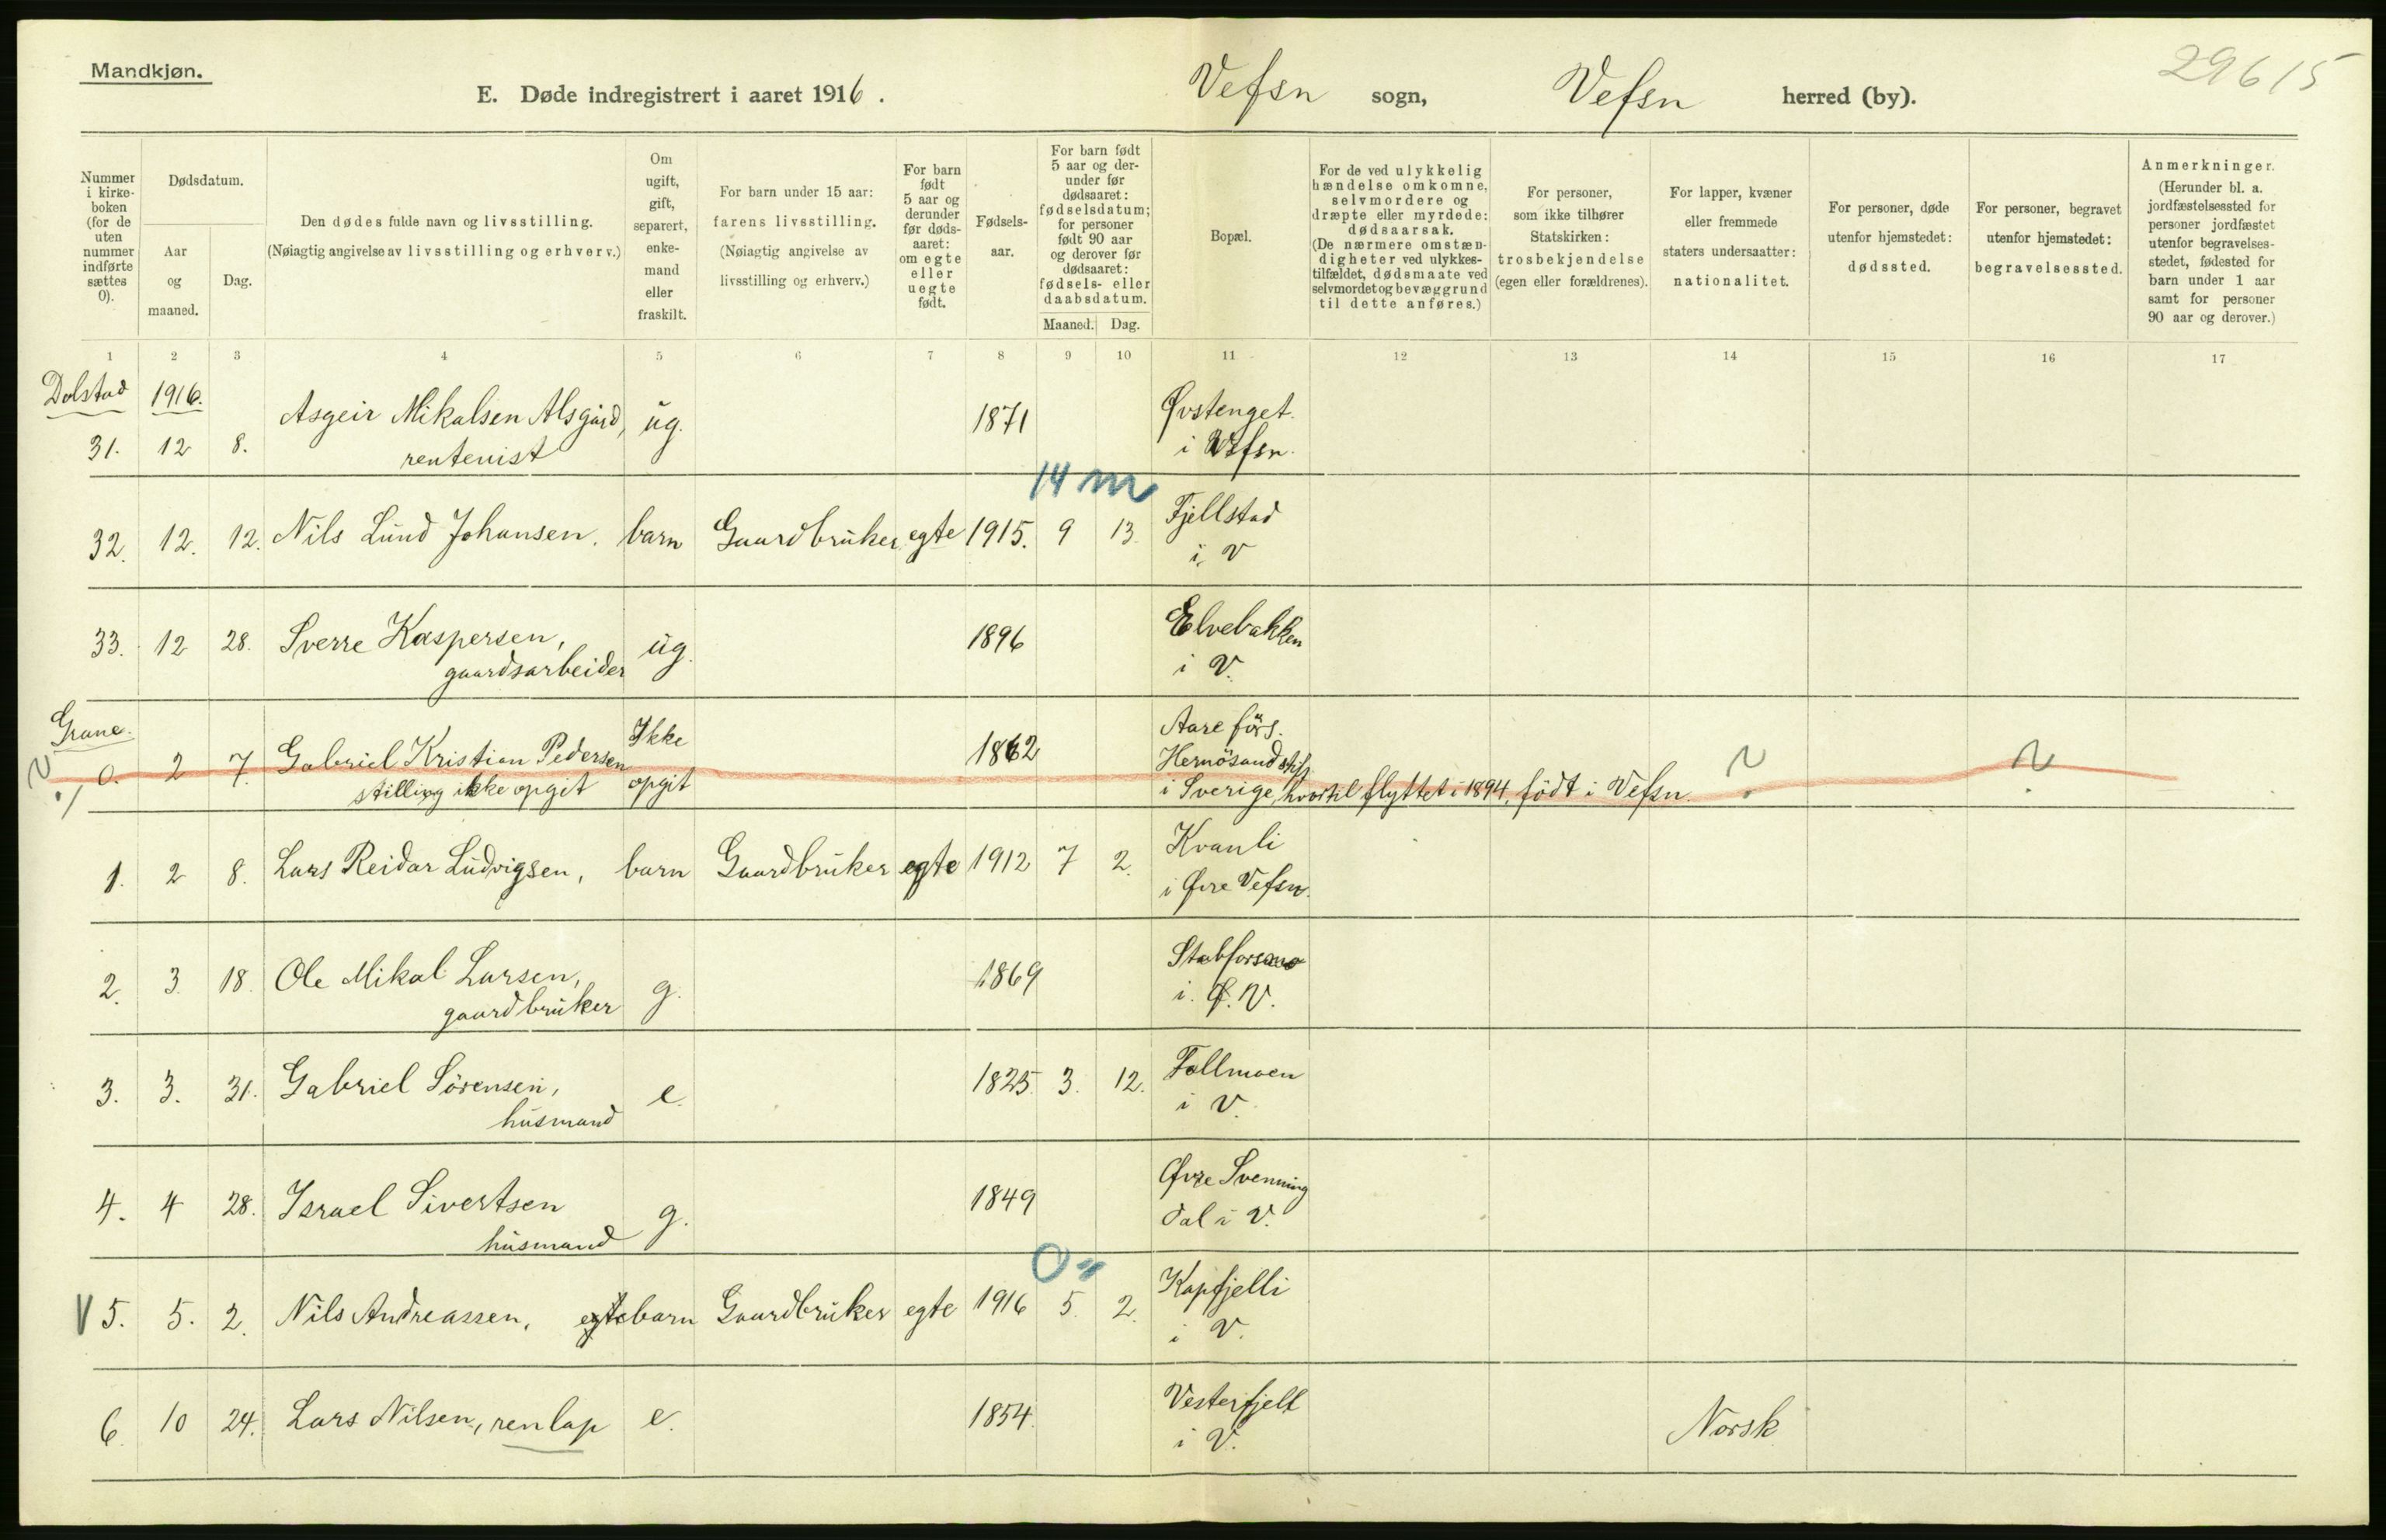 Mandkjøn.
29615
E. Døde indregistrert i aaret 1916. Vefsn sogn, Vefsn herred (by).
Nummer i kirke-boken (for de uten nummer indførte sættes 0).
Dødsdatum.
Aar og maaned.
Dag.
Den dødes fulde navn og livsstilling.
(Nøiagtig angivelse av livsstilling og erhverv.)
Om ugift, gift, separert, enke-mand eller fraskilt.
For barn under 15 aar:
farens livsstilling.
(Nøiagtig angivelse av livsstilling og erhverv.)
For barn født 5 aar og derunder før døds-aaret: om egte eller uegte født.
Fødsels-aar.
For barn født 5 aar og der-under før dødsaaret: fødselsdatum; for personer født 90 aar og derover før dødsaaret: fødsels- eller daabsdatum.
Maaned. Dag.
Bopæl.
For de ved ulykkelig hændelse omkomne, selvmordere og dræpte eller myrdede: dødsaarsak.
(De nærmere omstæn-digheter ved ulykkes-tilfældet, dødsmaate ved selvmordet og bevæggrund til dette anføres.)
For personer, som ikke tilhører Statskirken: trosbekjendelse (egen eller forældrenes).
For lapper, kvæner eller fremmede staters undersaatter: nationalitet.
For personer, døde utenfor hjemstedet: dødssted.
For personer, begravet utenfor hjemstedet: begravelsessted.
Anmerkninger.
(Herunder bl. a. jordfæstelsessted for personer jordfæstet utenfor begravelses-stedet, fødested for barn under 1 aar samt for personer 90 aar og derover.)
1 2 3 4 5 6 7 8 9 10 11 12 13 14 15 16 17
Dolstad 1916.
31. 12 8. Asgeir Mikalsen Alsgård, ug. 1871 Øvstenget
rentenist i Vefsn.
14 m
32. 12. 12. Nils Lund Johansen. barn Gaardbruker egte 1915. 9 13. Fjellstad
i V
33. 12 28. Sverre Kaspersen, ug. 1896 Elvebakken
gaardsarbeider i V.
Grane.
0. 2 7. Gabriel Kristian Pedersen Ikke 1862 Aare förs.
stilling ikke opgit opgit Hernösand stift
i Sverige, hvortil flyttet i 1894, født i Vefsn.
1. 2 8. Lars Reidar Ludvigsen, barn Gaardbruker egte 1912 7 2. Kvanli
i Øvre Vefsn.
2. 3. 18. Ole Mikal Larsen, g. 1869
gaardbruker i. Ø. V.
3. 3. 31. Gabriel Sörensen, e. 1825. 3. 12. Fallmoen
husmand i V.
4. 4 28. Israel Sivertsen g. 1849 Øvre Svenning
husmand dal i V.
0
V 5. 5. 2. Nils Andreassen, egte barn Gaardbruker egte 1916 5. 2. Kapfjelli
i V.
6. 10 24. Lars Nilsen, renlap e. 1854. Vesterfjelt Norsk
i V.